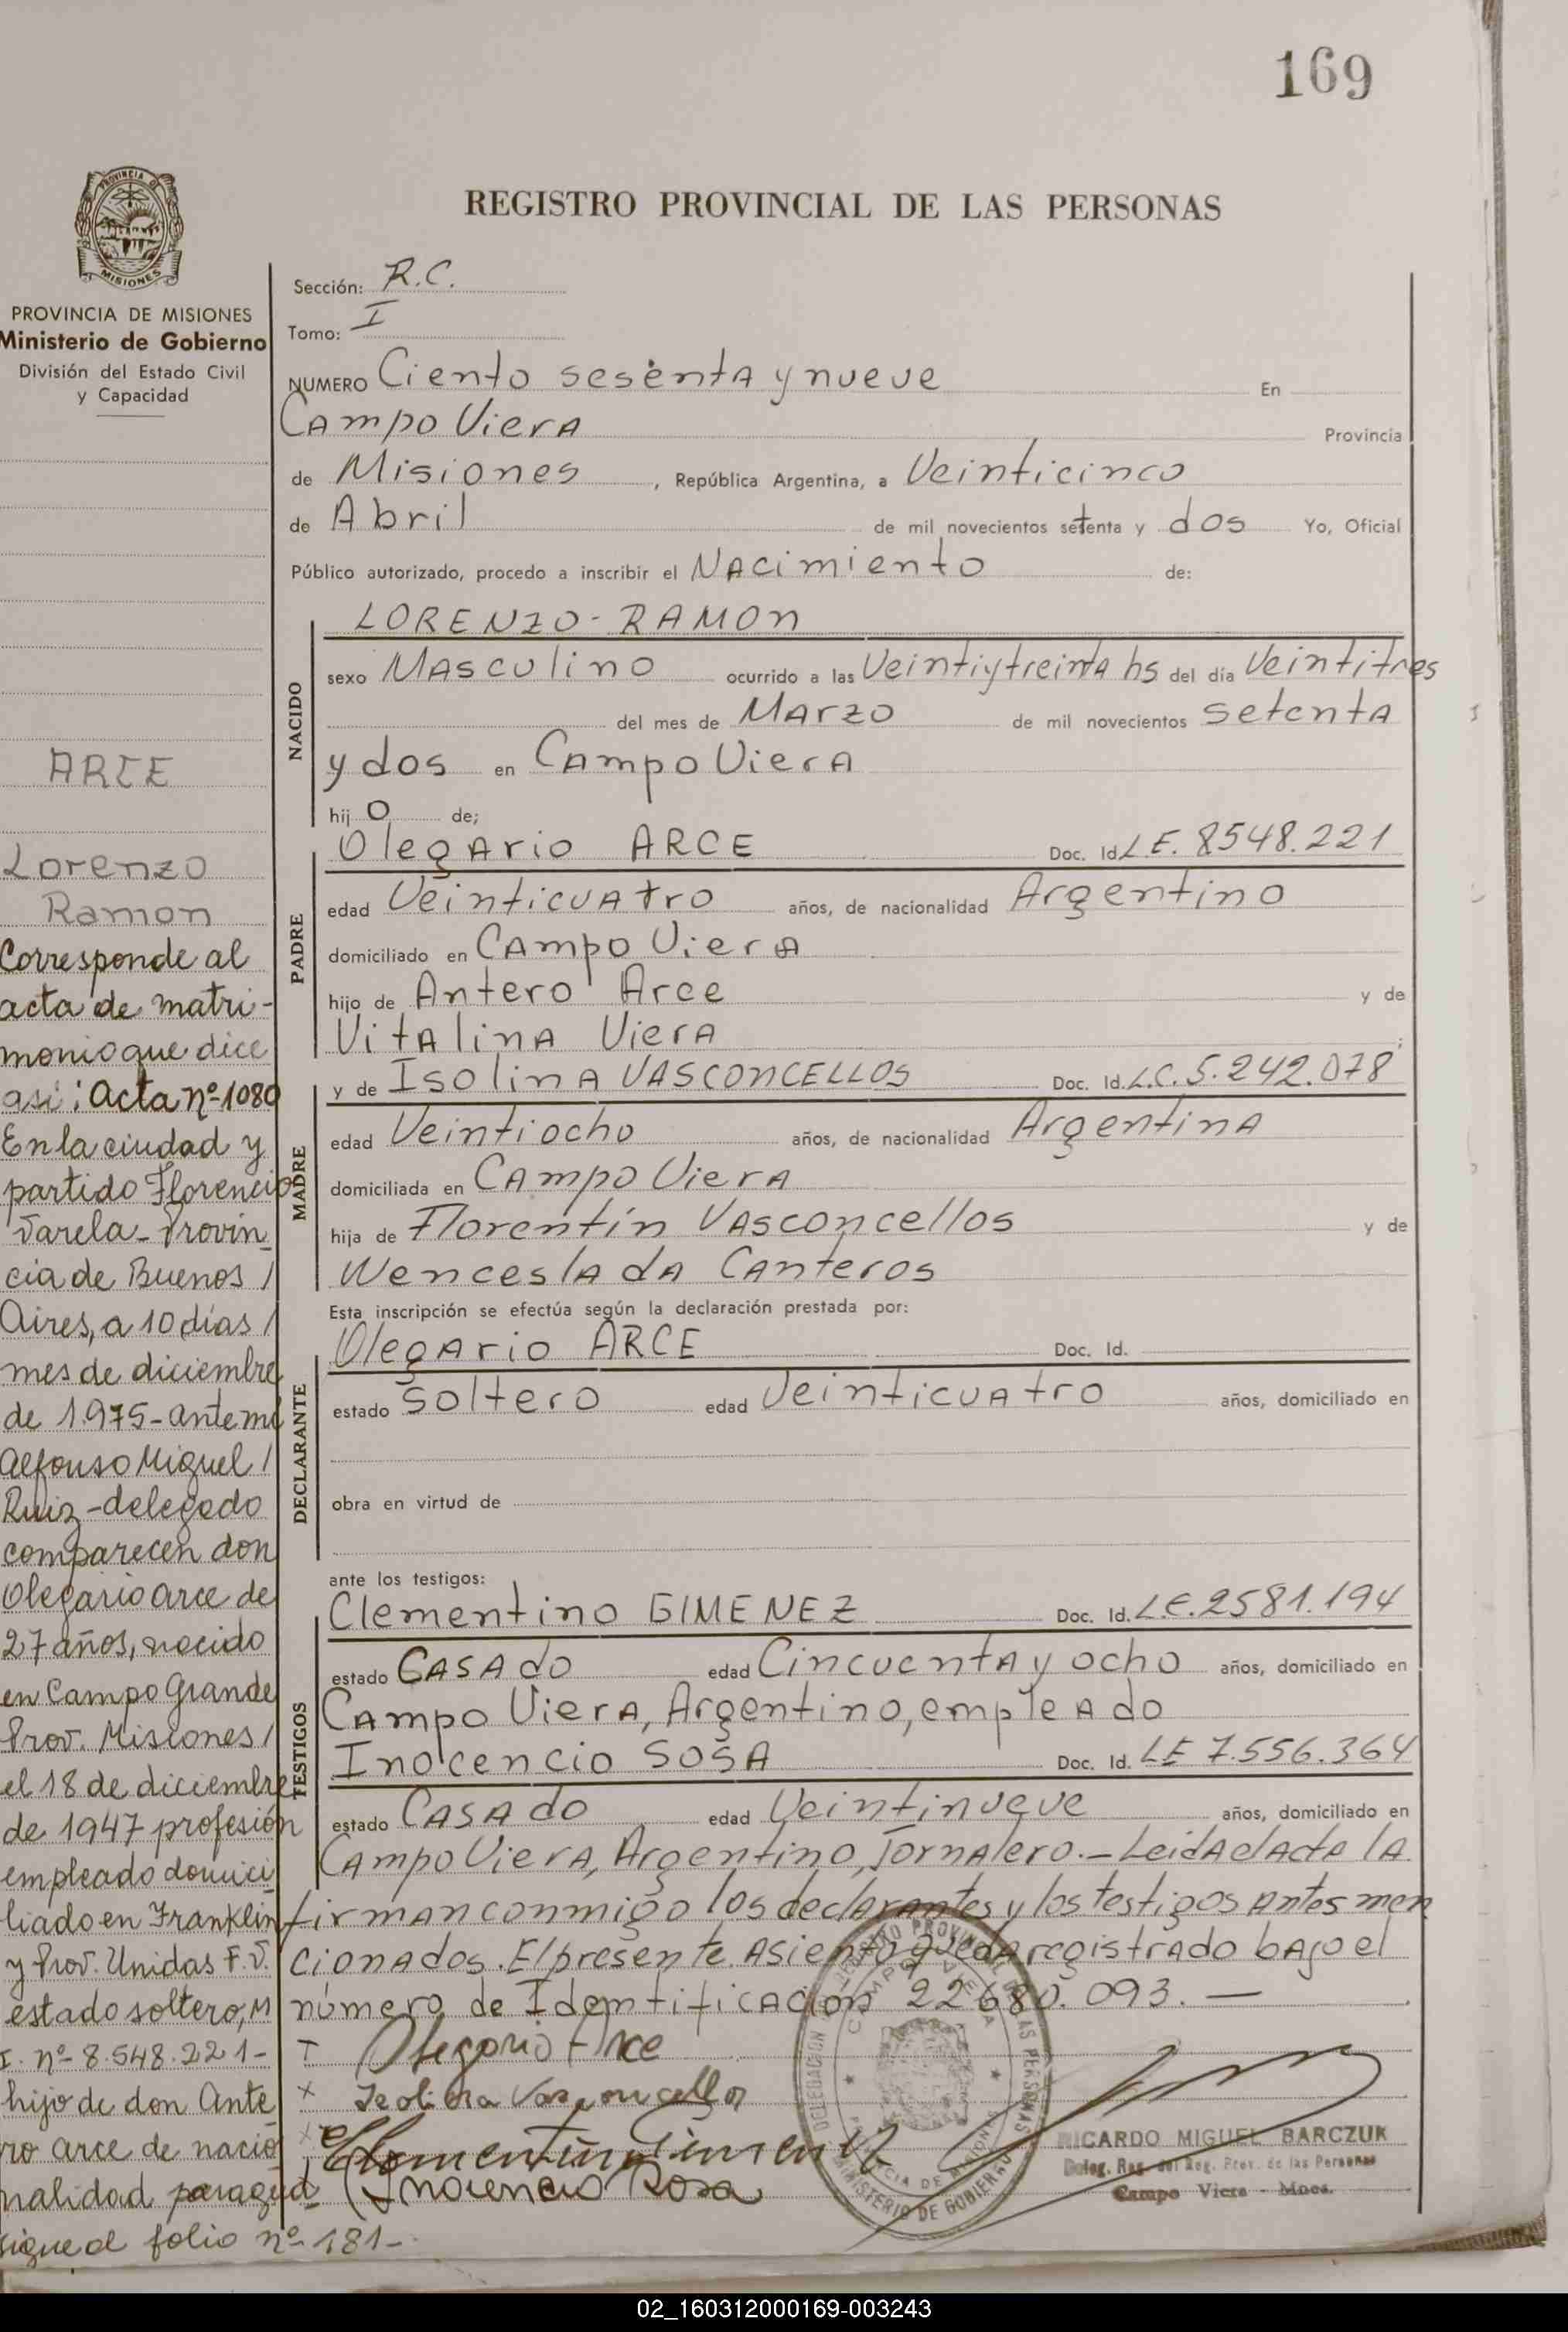 169
PROVINCIA DE MISIONES
Ministerio de Gobierno
División del Estado Civil
y Capacidad
REGISTRO PROVINCIAL DE LAS PERSONAS
Sección: R.C.
Tomo: I
NUMERO Ciento sesenta y nueve En
Campo Viera Provincia
de Misiones, República Argentina, a Veinticinco
de Abril de mil novecientos setenta y dos Yo, Oficial
Público autorizado, procedo a inscribir el Nacimiento de:
NACIDO
LORENZO-RAMON
sexo Masculino ocurrido a las Veintiytreinta hs del día Veintitres
del mes de Marzo de mil novecientos setenta
y dos en Campo Viera
hijo de;
PADRE
Olegario ARCE Doc. Id. L.E. 8548.221
edad Veinticuatro años, de nacionalidad Argentino
domiciliado en Campo Viera
hijo de Antero Arce y de
Vitalina Viera;
MADRE
y de Isolina VASCONCELLOS Doc. Id. L.C. 5.242.078
edad Veintiocho años, de nacionalidad Argentina
domiciliada en Campo Viera
hija de Florentín Vasconcellos y de
Wenceslada Canteros
Esta inscripción se efectúa según la declaración prestada por:
DECLARANTE
Olegario ARCE Doc. Id.
estado Soltero edad Veinticuatro años, domiciliado en
obra en virtud de
ante los testigos:
TESTIGOS
Clementino GIMENEZ Doc. Id. L.E. 2581.194
estado Casado edad Cincuenta y ocho años, domiciliado en
Campo Viera, Argentino, empleado
Inocencio SOSA Doc. Id. LE 7.556.364
estado Casado edad Veintinueve años, domiciliado en
Campo Viera, Argentino, Jornalero.- Leida el acta la
firman conmigo los declarantes y los testigos antes men
cionados. El presente Asiento queda registrado bajo el
número de Identificación 22680.093. —
Olegario Arce
Isolina Vasconcellos
Clementino Gimenez
Inocencio Sosa
RICARDO MIGUEL BARCZUK
Deleg. Reg. del Reg. Prov. de las Personas
Campo Viera - Mnes.
ARCE
Lorenzo
Ramon
Corresponde al
acta de matri-
monio que dice
asi: Acta nº 1080
En la ciudad y
partido Florencio
Varela-Provin
cia de Buenos /
Aires, a 10 días /
mes de diciembre
de 1.975-ante mi
Alfonso Miguel /
Ruiz-delegado
comparecen don
Olegario Arce de
27 años, nacido
en Campo Grande
Prov. Misiones /
el 18 de diciembre
de 1947 profesión
empleado domici
liado en Franklin
y Prov. Unidas F.V.
estado soltero, M
I. nº 8.548.221-
hijo de don Ante
ro Arce de nacio
nalidad paragua
sigue al folio nº 181-
02_160312000169-003243